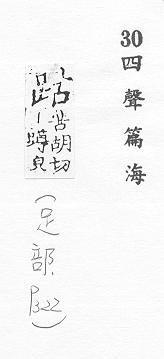 30 四聲篇海
跍苦胡切
丨蹲皃
(足部, P322)